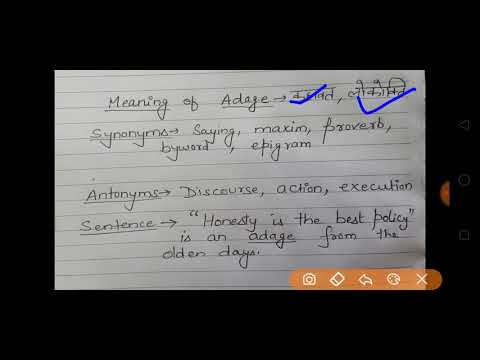 Meaning of Adage → कहावत, लोकोक्ति
Synonyms → Saying, maxim, proverb,
byword, epigram
Antonyms → Discourse, action, execution
Sentence → "Honesty is the best policy"
is an adage from the
olden days.